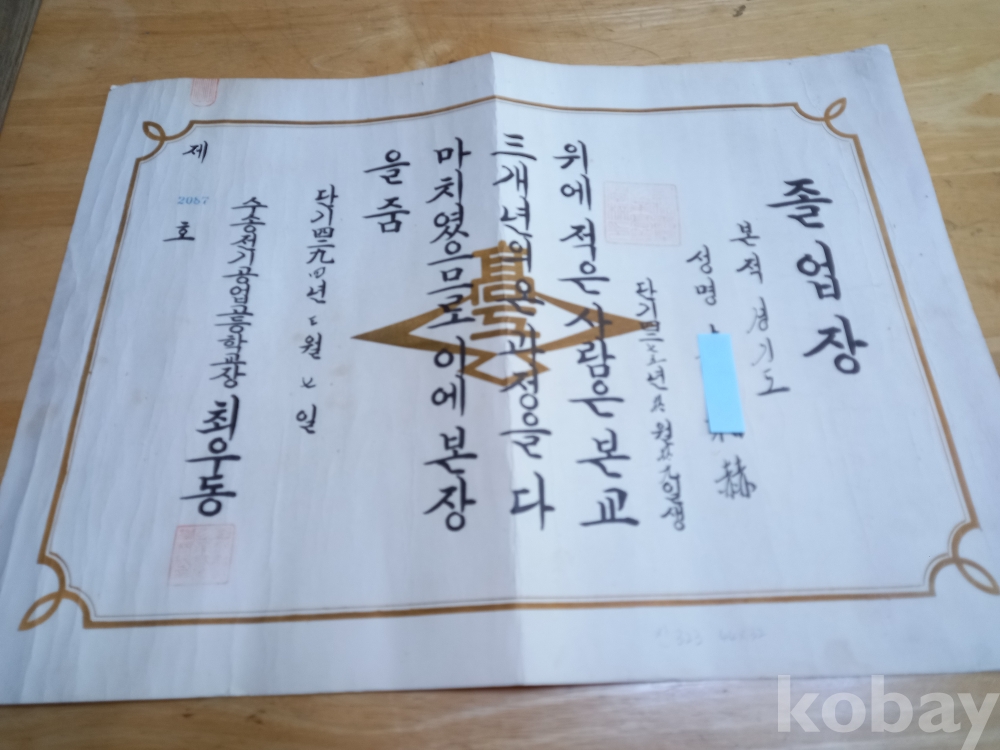 졸업장
본적 경기도
성명
赫
단기
위에 적은 사람은 본교
三개년의 온 과정을 다
마치였으므로 이에 본장
을 줌
단기四二九四년 月 일
수송전기공업고등학교장 최우동
제 2067 호
高
kobay